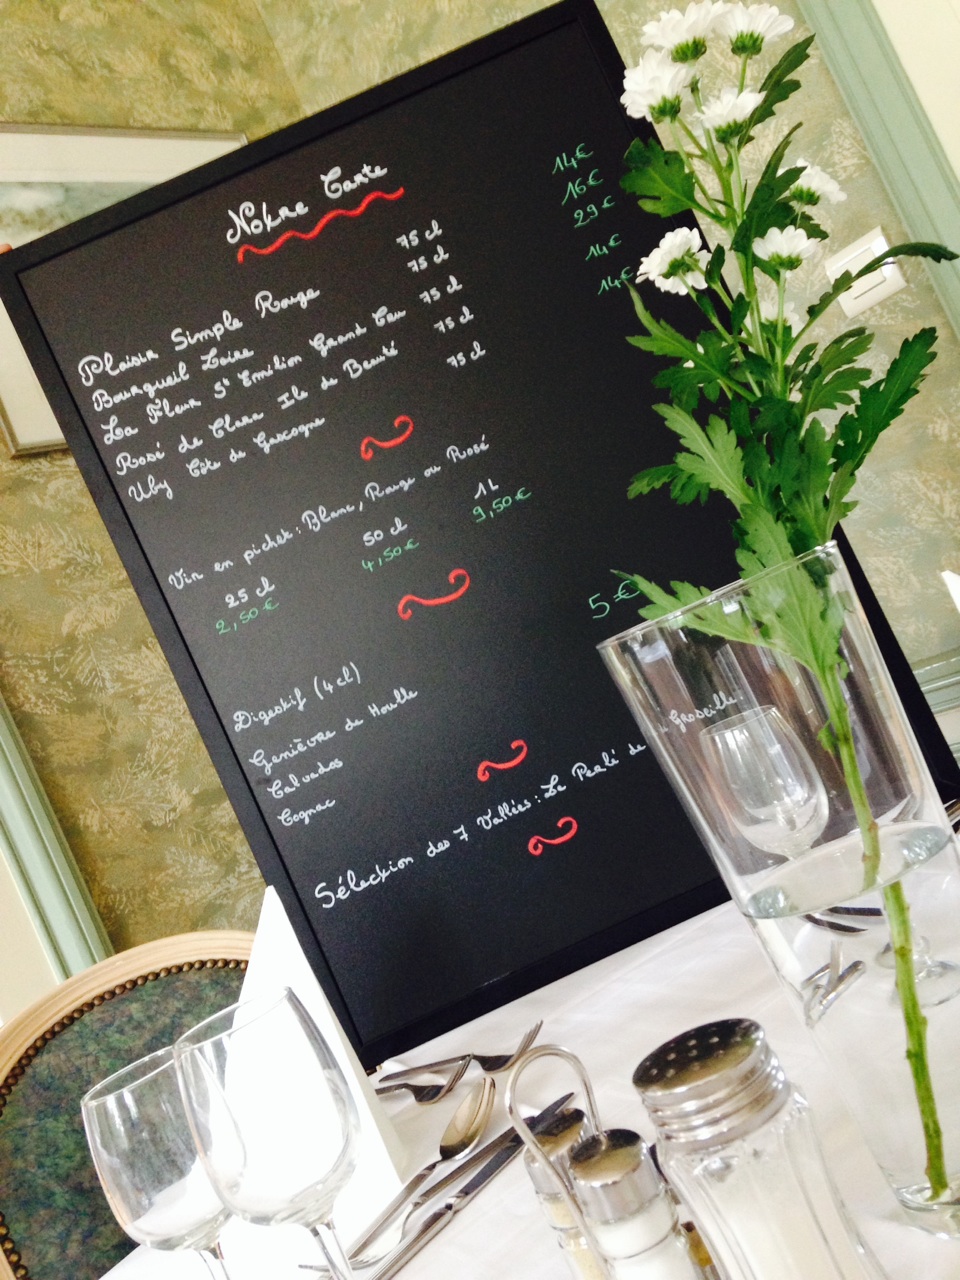 Notre Carte
Plaisir Simple Rouge 75 cl 14€
Bourgueil Loire 75 cl 16€
La Fleur St Emilion Grand Cru 75 cl 29€
Rosé de Clara Ile de Beauté 75 cl 14€
Uby Côte de Gascogne 75 cl 14€
Vin en pichet : Blanc, Rouge ou Rosé
25 cl 50 cl 1L
2,50€ 4,50€ 9,50€
Digestif (4cl) 5€
Genièvre de Houlle
Calvados
Cognac
Sélection des 7 Vallées : Le Perlé de Groseille